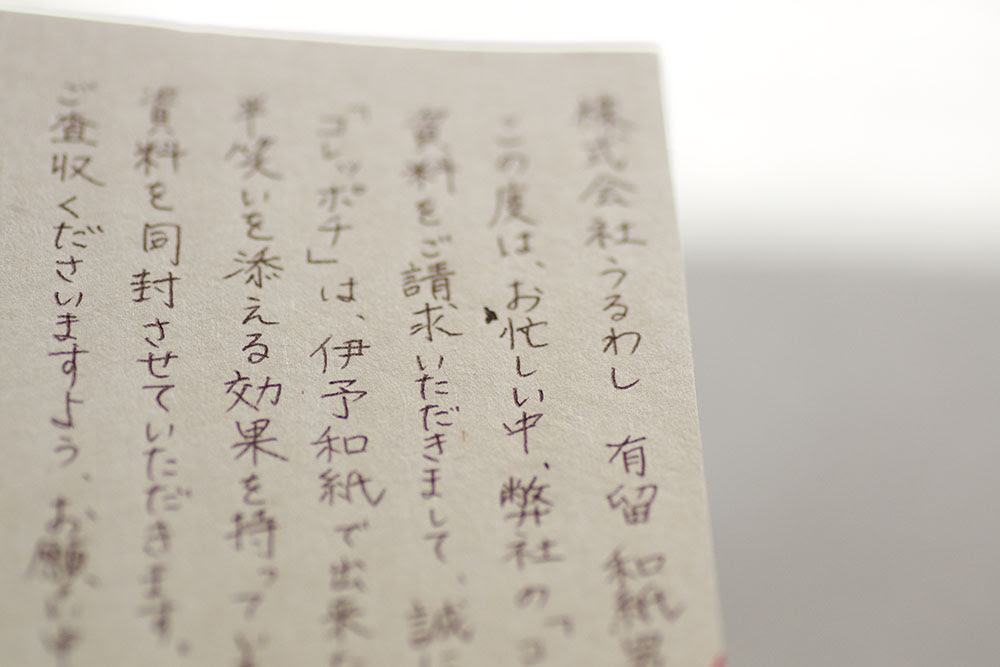 株式会社うるわし 有留 和紙
この度は、お忙しい中、弊社の「コ
資料をご請求いただきまして、誠に
「コレッポチ」は、伊予和紙で出来た
半笑いを添える効果を持ってい
資料を同封させていただきます。
ご査収くださいますよう、お願い申